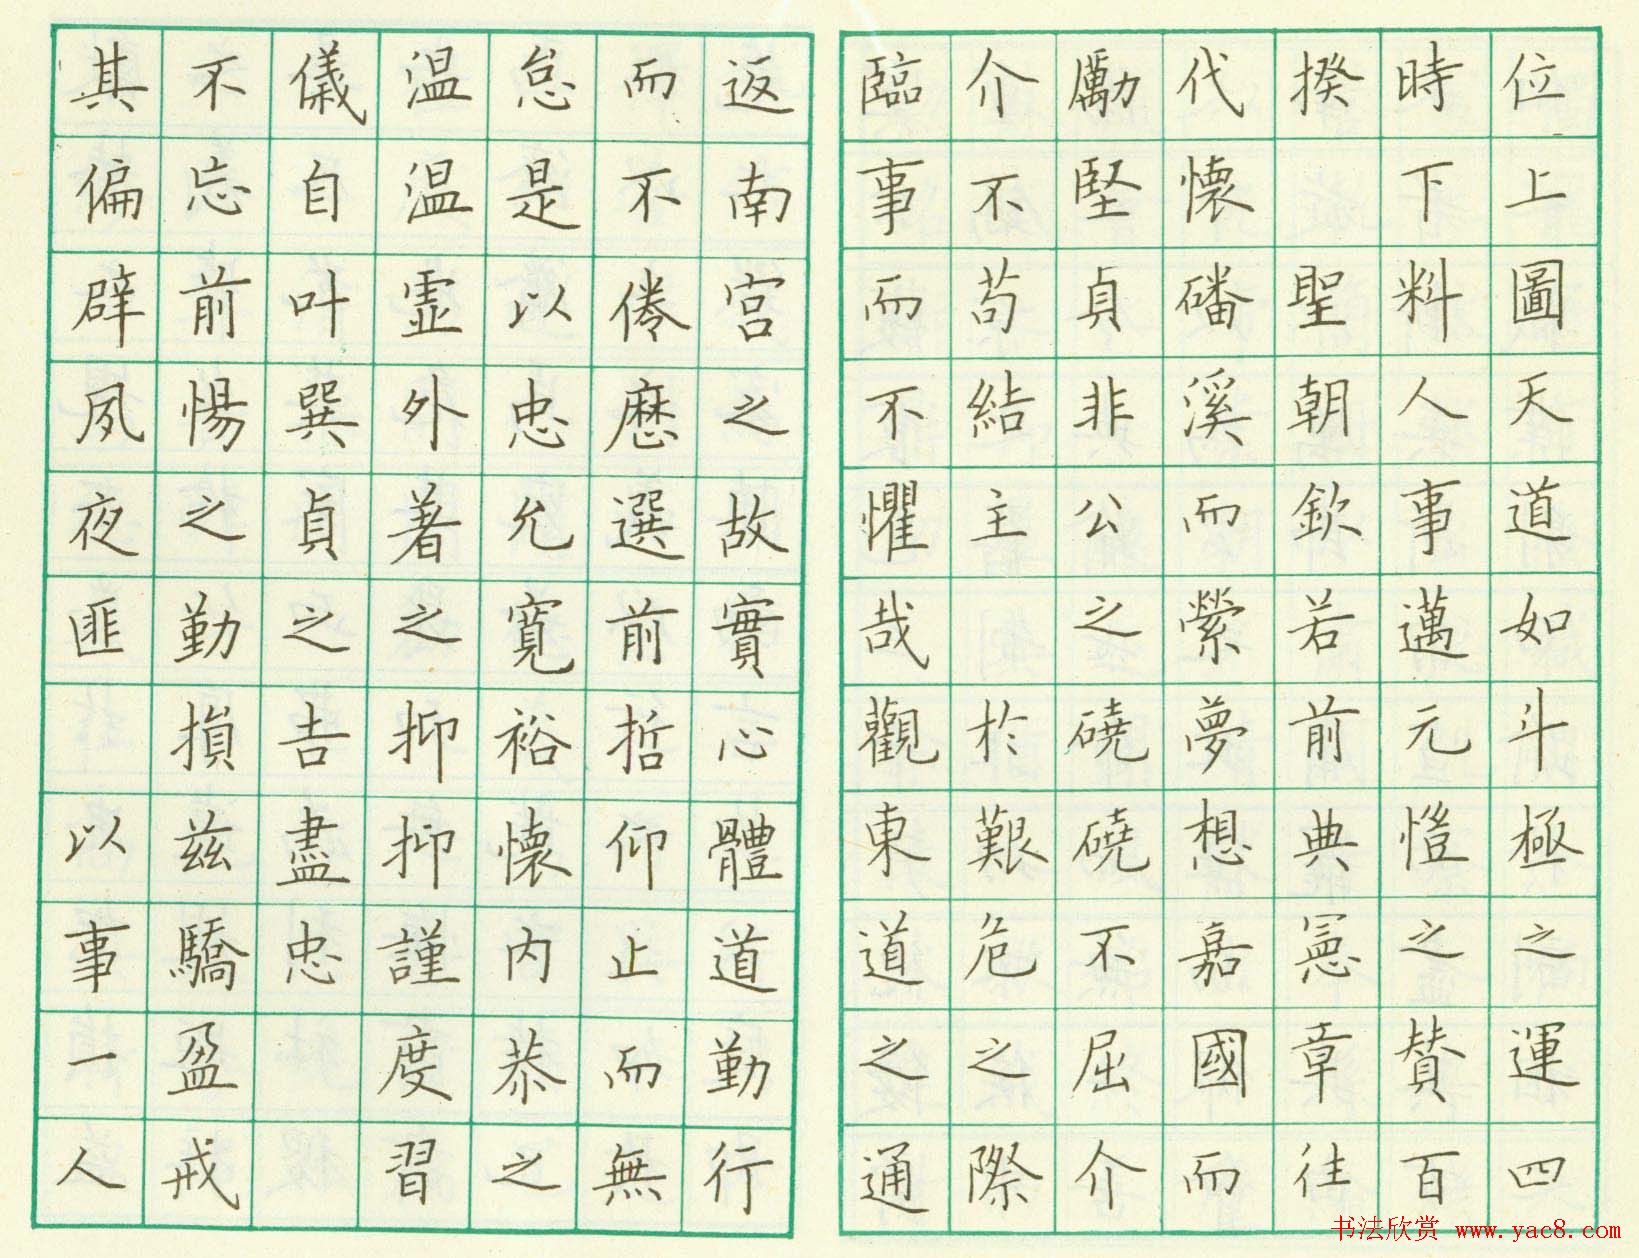 位上圖天道如斗極之運四
時下料人事邁元愷之贊百
揆聖朝欽若前典憲章往
代懷磻溪而縈夢想嘉國而
勵堅貞非公之磽磽不屈介
介不苟結主於艱危之際
臨事而不懼哉觀東道之通
返南宫之故實心體道勤行
而不倦歷選前哲仰止而無
怠是以忠允寬裕懷内恭之
温温虚外著之抑抑謹度習
儀自叶巽貞之吉盡忠
不忘前惕之勤損兹驕盈戒
其偏辟夙夜匪以事一人
书法欣赏 www.yac8.com